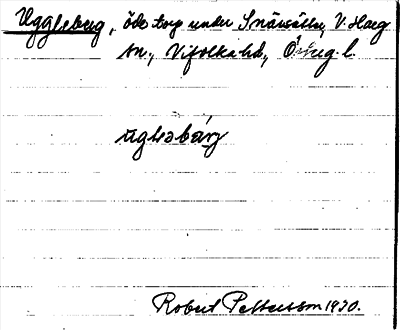 Uggleberg, öde torp under Snårsätter, V. Harg
sn., Vifolka hd., Östug. l.
uglabärj
Robert Pettersson 1930.